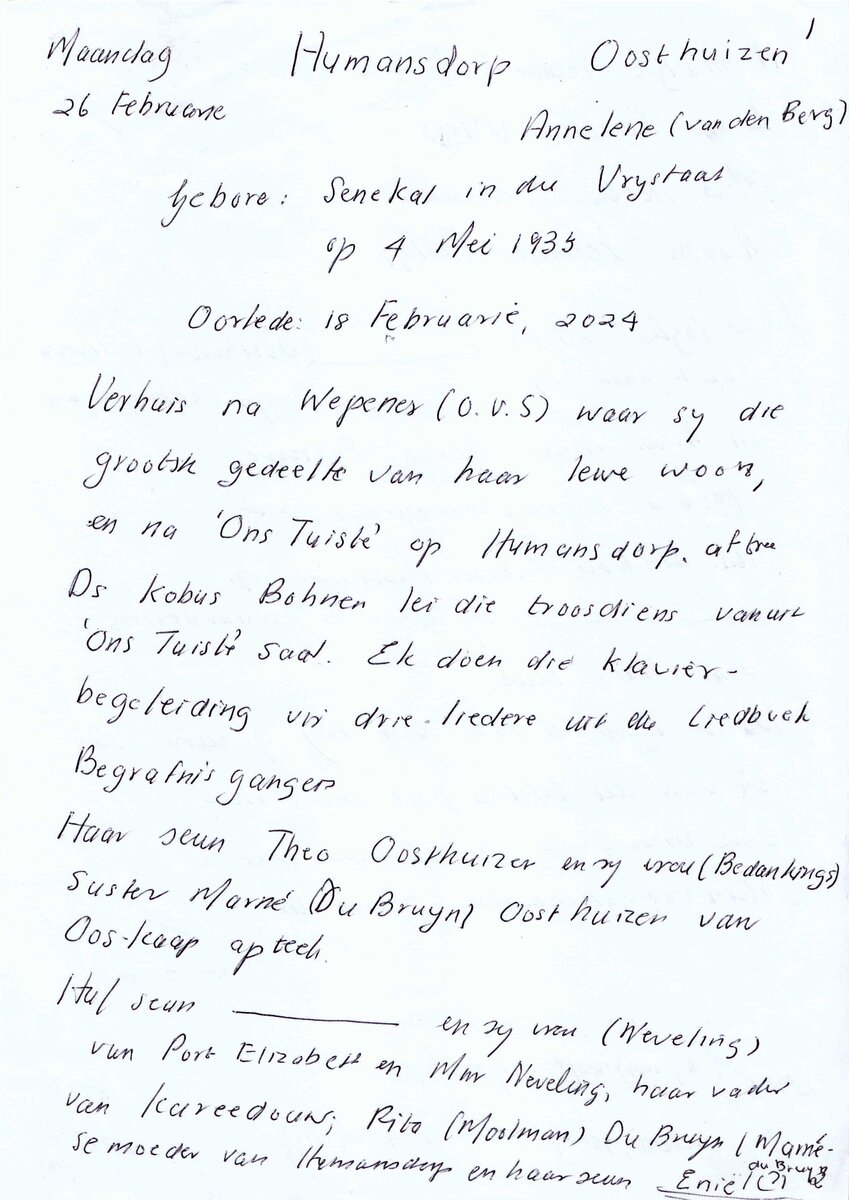 Maandag Humansdorp Oosthuizen 1
26 Februarie Annelene (van den Berg)
Gebore: Senekal in die Vrystaat
op 4 Mei 1935
Oorlede: 18 Februarie, 2024
Verhuis na Wepener (O.V.S) waar sy die
grootste gedeelte van haar lewe woon,
en na 'Ons Tuiste' op Humansdorp. aftree
Ds Kobus Bohnen lei die troosdiens vanuit
'Ons Tuiste' saal. Ek doen die klavier-
begeleiding vir drie liedere uit die Liedboek
Begrafnisgangers
Haar seun Theo Oosthuizen en sy vrou (Bedankings)
Suster Marné (Du Bruyn) Oosthuizen van
Oos-Kaap apteek.
Hul seun ________ en sy vrou (Neveling)
van Port Elizabeth en Mnr Neveling, haar vader
van Kareedouw; Rita (Moolman) Du Bruyn (Marné-
se moeder van Humansdorp en haar seun Eniël (?)
du Bruyn